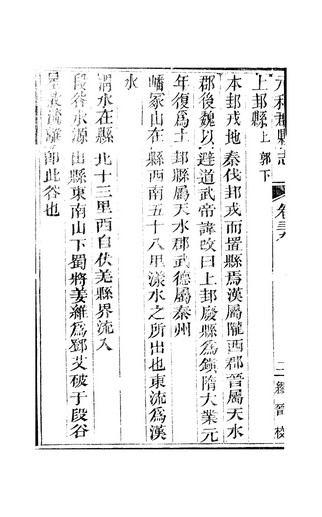 元和郡縣志 卷三九 二 繆晉校
上邽縣上郭下
本邽戎地秦伐邽戎而置縣焉漢屬隴西郡晉屬天水
郡後魏以避道武帝諱改曰上封廢縣爲鎮隋大業元
年復爲上邽縣屬天水郡武德屬秦州
嶓冢山在縣西南五十八里漾水之所出也東流爲漢
水
渭水在縣北十三里西自伏羌縣界流入
段谷水源出縣東南山下蜀將姜維爲鄧艾破于段谷
星散流離卽此谷也